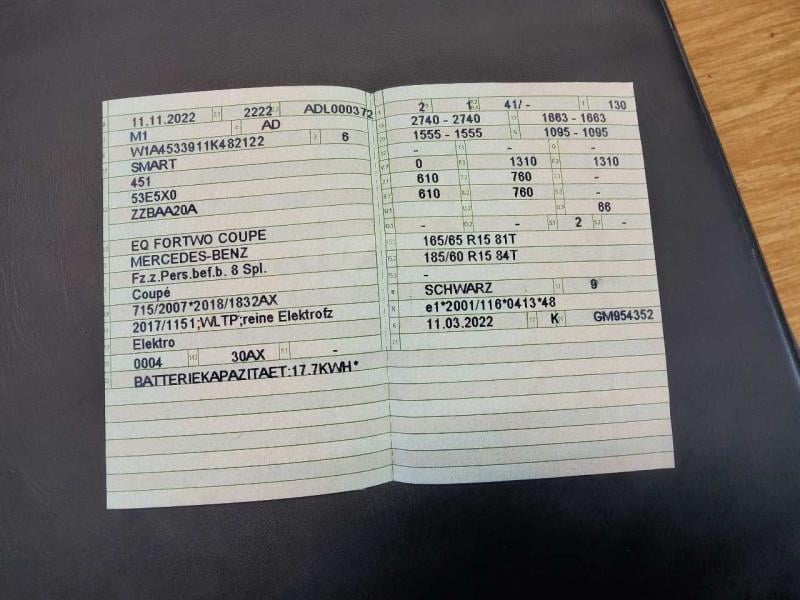 11.11.2022 2222 ADL000372
M1 AD
W1A4533911K482122 6
SMART
451
53E5X0
ZZBAA20A
EQ FORTWO COUPE
MERCEDES-BENZ
Fz.z.Pers.bef.b. 8 Spl.
Coupé
715/2007*2018/1832AX
2017/1151;WLTP;reine Elektrofz
Elektro
0004 30AX -
BATTERIEKAPAZITAET:17.7KWH*
2 1 41/- 130
2740 - 2740 1663 - 1663
1555 - 1555 1095 - 1095
- - - -
0 1310 1310
610 760 -
610 760 -
66
- - 2 -
165/65 R15 81T
185/60 R15 84T
-
SCHWARZ 9
e1*2001/116*0413*48
11.03.2022 K GM954352